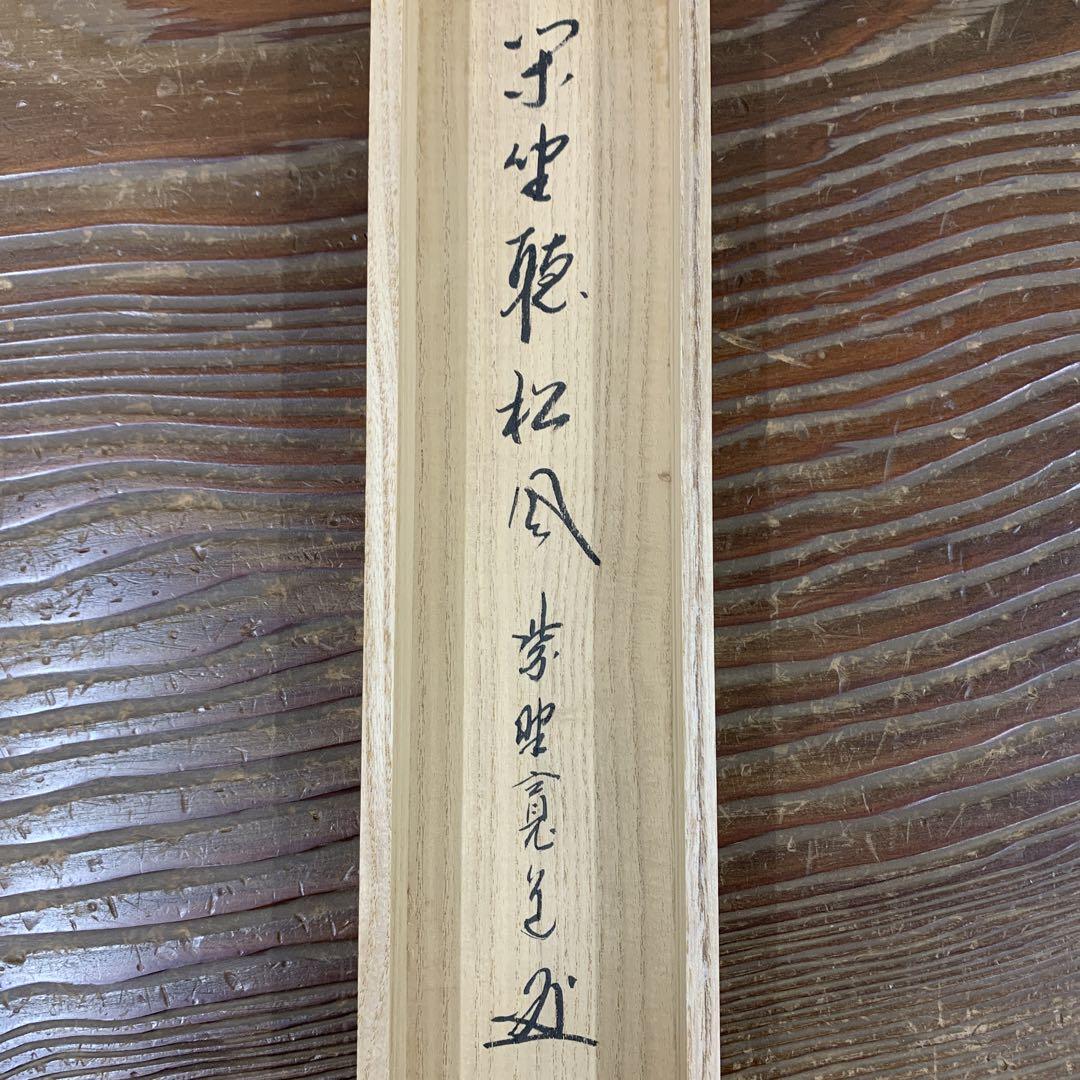 閑坐聴松風 紫野寛道